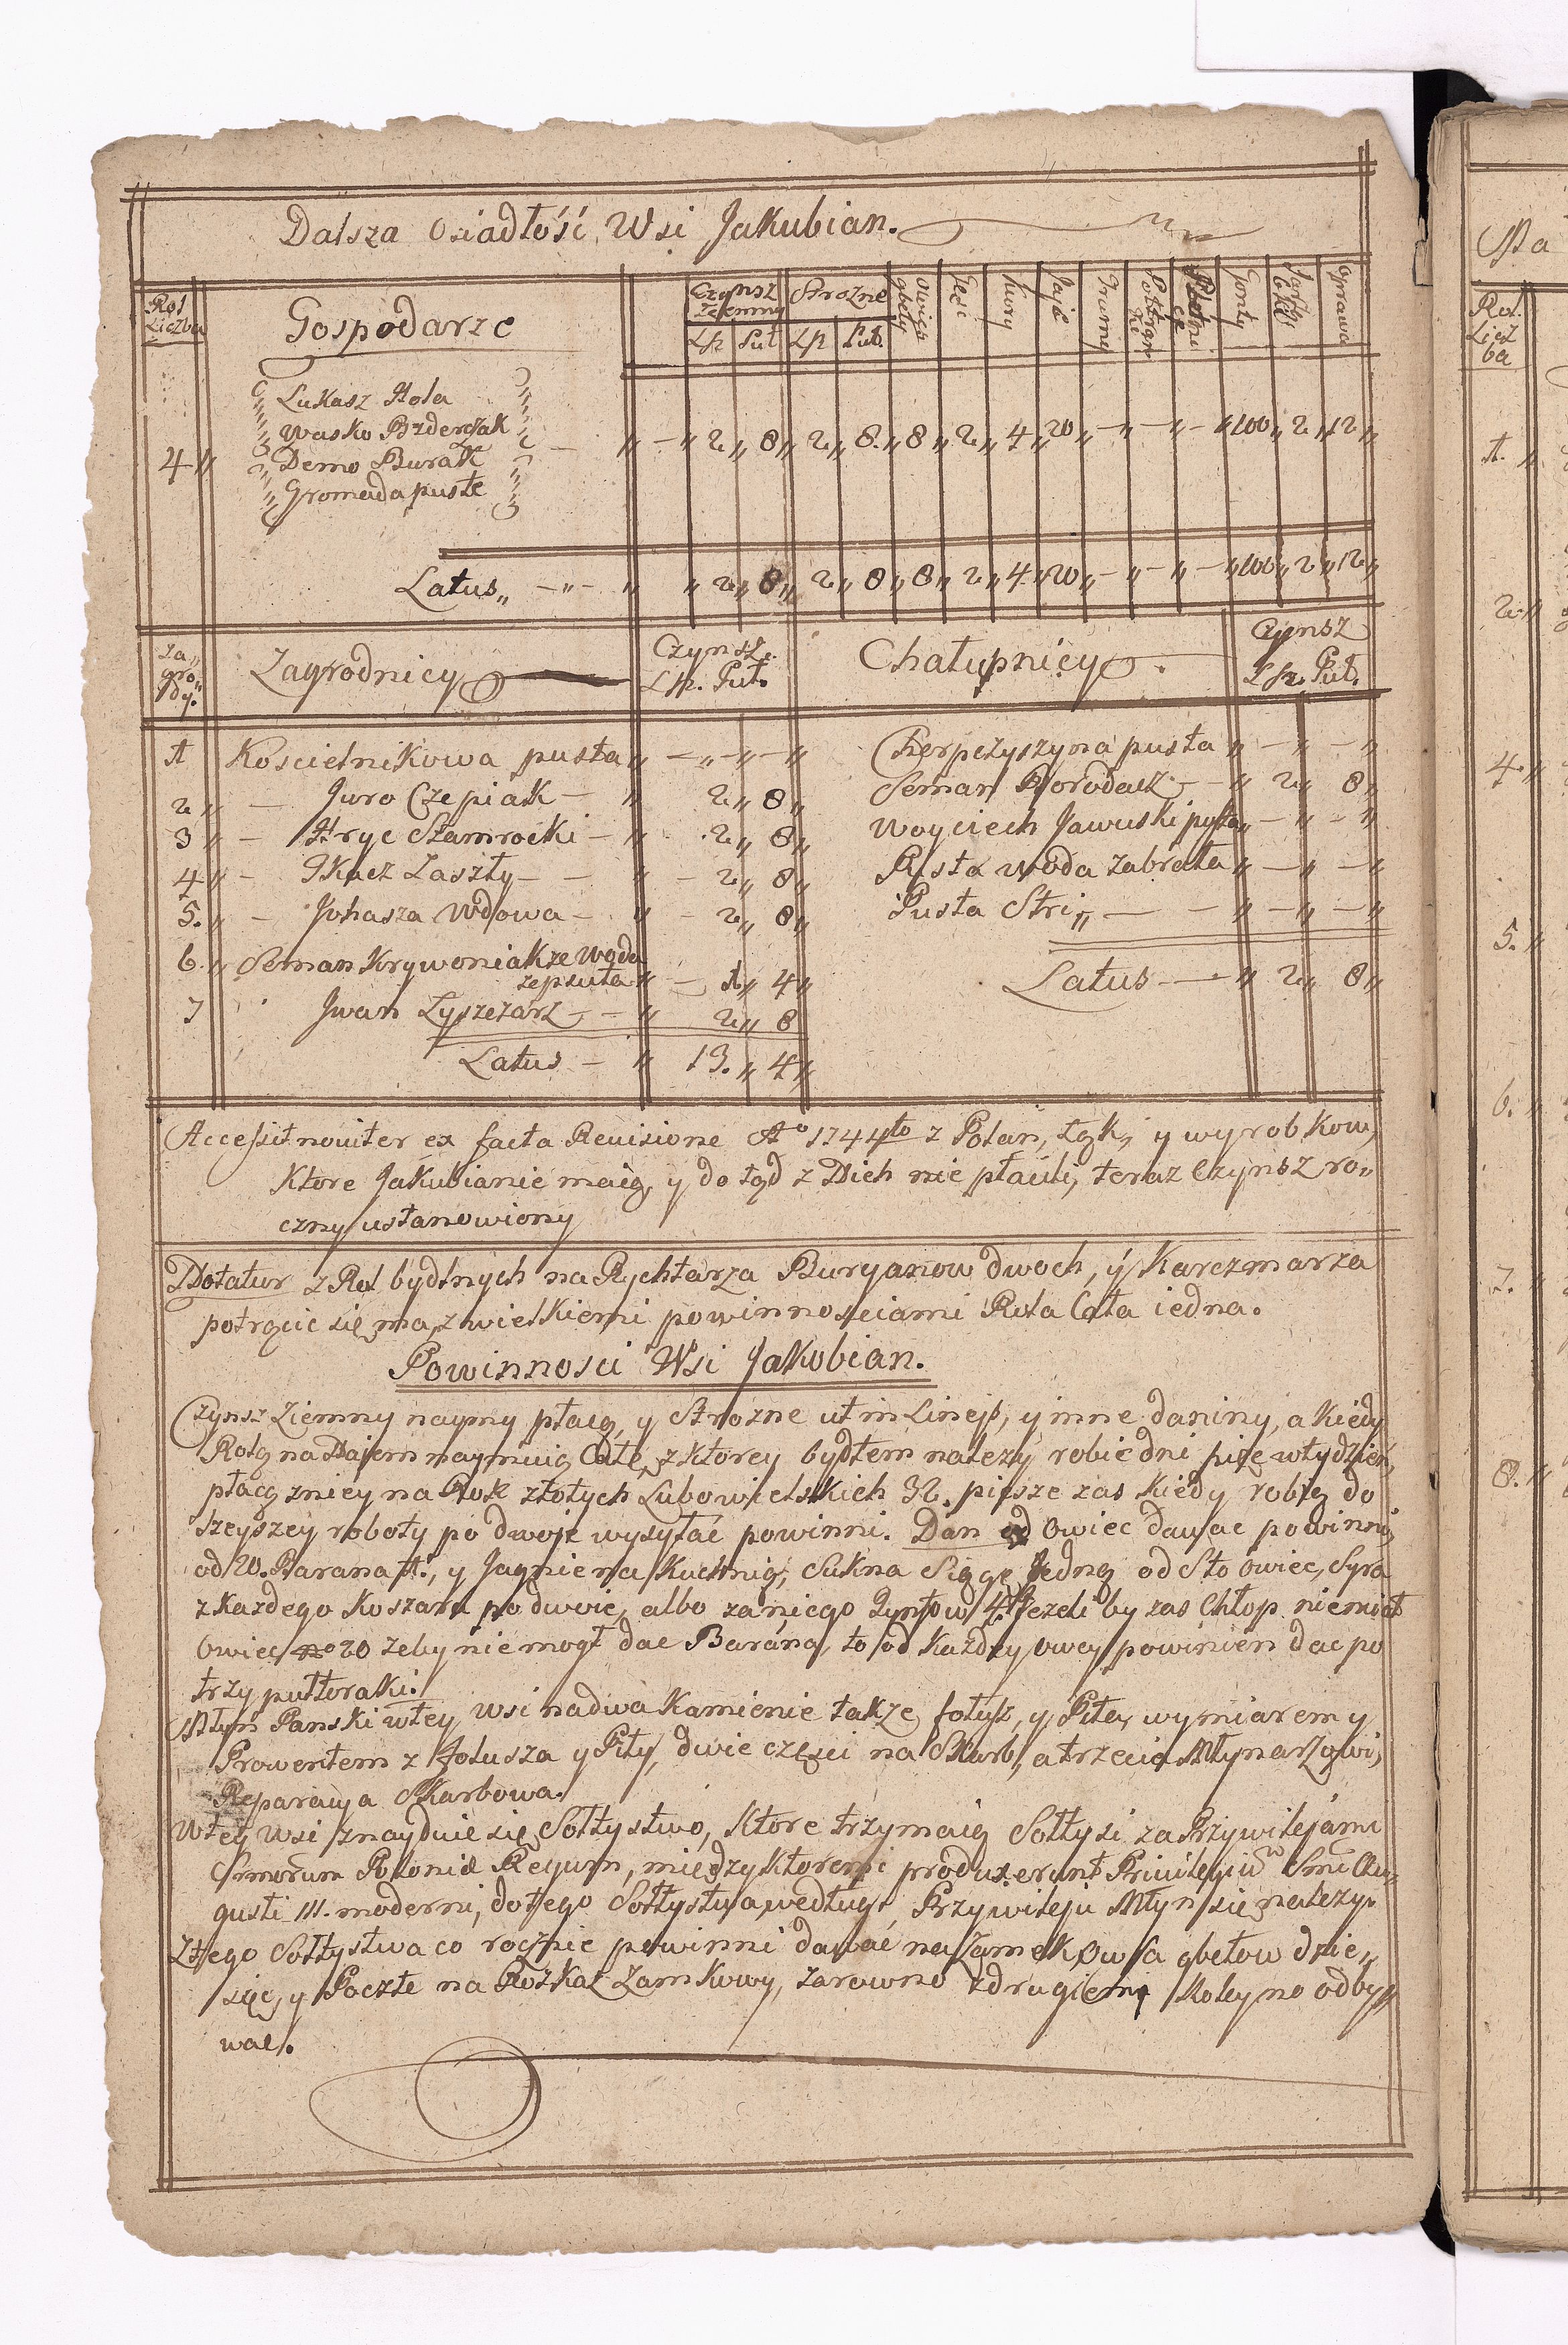 Dalsza Osiadłość Wsi Jakubian.
Rol Liczba
Gospodarze
Czynsz Ziemny
Strożne
Łp Puł Łp Puł.
Owies gbely
Gęśi
Kury
Jajcé
Gonty
Oprawa
Lukasz Hola
Wasko Bzdergak
4 „ Demo Burak „ — „ 2 „ 8 „ 2 „ 8 „ 8 „ 2 „ 4 „ 20 „ — „ — „ — „ 100 „ 2 „ 12 „
Gromada puste
Latus „ — „ — „ „ 2 „ 8 „ 2 „ 8 „ 8 „ 2 „ 4 „ 20 „ — „ — „ — „ 100 „ 2 „ 12 „
Za„ gro„ dy.
Zagrodnicy
Czynsz. Łp. Puł.
Chałupnicy.
Czynsz Łp. Puł.
1 Koscielnikowa pusta „ — „ — „ — „
2 „ — Juro Czepiak — „ 2 „ 8 „
3 „ — Hryc Stamrocki — „ 2 „ 8 „
4 „ — Tkacz Laszły — — „ — 2 „ 8 „
5. „ — Juhasza Wdowa — „ — 2 „ 8 „
6. „ Seman Krywoniak ze Woda
zepsuta „ — 1 „ 4 „
7 Jwan Łyszczarz — — „ 2 „ 8
Latus — „ 13. „ 4 „
Cherpczyszyna pusta „ — „ — „
Seman Borodacz — „ 2 „ 8 „
Woyciech Jawuski pusta „ — „ — „
Pusta woda zabrała „ — „ — „
Pusta Stri „ — — „ — „ — „
Latus — „ 2 „ 8 „
Accessit noviter ex facta Revisione Aº 1744to z Polan, Łąk, y wyrobkow,
Ktore Jakubianie maią, y do tąd z Nich nie płacili, teraz Czynsz ro„
czny ustanowiony
Notatur z Rol bydlnych na Rychtarza Buryanow dwoch, y Karczmarza
potrącić się ma, z wielkiemi powinnosciami Rola Cała iedna.
Powinnosci Wsi Jakobian.
Czynsz Ziemny naymy płacą, y Strożne ut in Lineis, y inne daniny, a kiedy
Rolą na Najem naymuią Całą, z ktorey bydłem należy robić dni pięć w tydzień,
płacą zniey na Rok złotych Lubowelskich 32. piesze zaś kiedy robią do
szeyszey roboty po dwoje wysyłać powinni. Dan od Owiec dawać powinni,
od 20. Barana 1., y Jagnie na Kuchnią, Sukna Sięgę Jedną od Sto Owiec, Syra
z każdego Koszaru po dwoie, albo za niego Funtow 4. Jezeli by zas Chłop niemiał
Owiec no 20 zeby niemogł dac Barana, to od każdzy owcy powinien dac po
trzy pułtoraki.
Młyn Panski wtey Wsi na dwa kamienie takze folusz, y Piła, wymiarem y
Prowentem z folusza y Piły, dwie częsci na Skarb, a trzecia Młynarzowi,
Reparacya Skarbowa.
Wtey Wsi znayduie się Sołtystwo, Ktore trzymaią Sołtysi za Przywilejami
Srmorum Poloniæ Regum, między ktoremi produxerunt Privilegiū Smi Au„
gusti III. moderni, do tego Sołtystwa według Przywileju Młyn się należy.
Z tego Sołtystwa co rocznie powinni dawać na Zamek Owsa gbełow dzie„
sięć, y Poczte na Rozkaz Zamkowy, zarowno z drugiemi Koleyno odby„
wać.
Rol. Licz ba
1. „
2. „
4. „
5. „
6. „
7. „
8. „